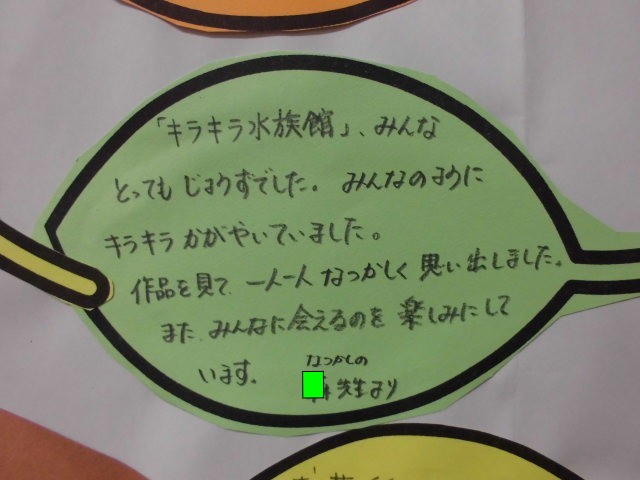 「キラキラ水族館」、みんな
とっても じょうずでした。 みんなのように
キラキラ かがやいていました。
作品を見て、一人一人 なつかしく 思い出しました。
また、みんなに会えるのを 楽しみにして
います。
なつかしの
先生より